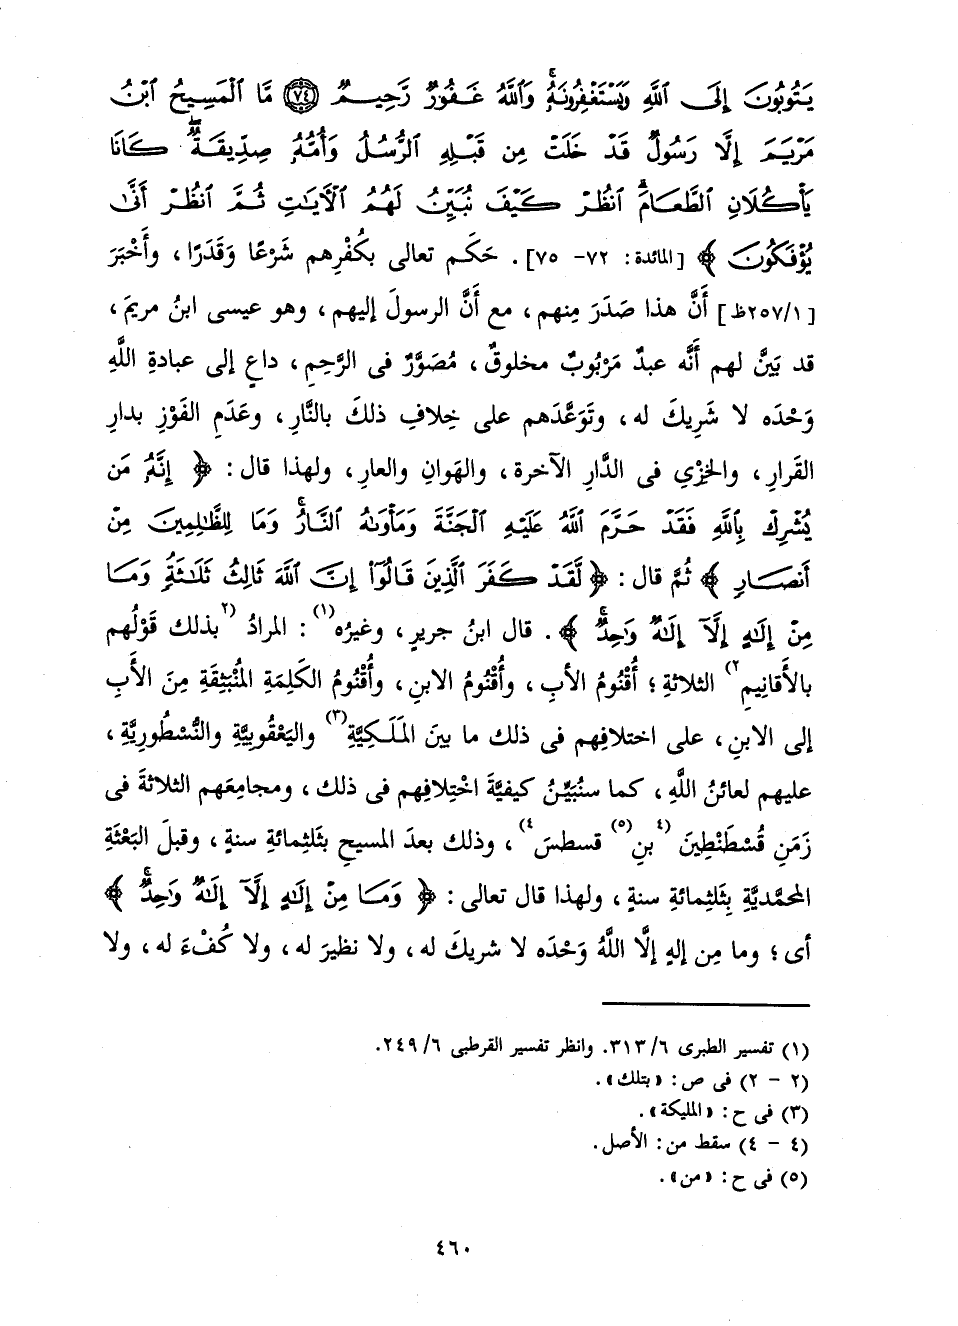 يَتُوبُونَ إِلَى اللَّهِ وَيَسْتَغْفِرُونَهُۥۚ وَاللَّهُ غَفُورٌ رَّحِيمٌ ۝٧٤ مَّا الْمَسِيحُ ابْنُ
مَرْيَمَ إِلَّا رَسُولٌ قَدْ خَلَتْ مِن قَبْلِهِ الرُّسُلُ وَأُمُّهُۥ صِدِّيقَةٌۖ كَانَا
يَأْكُلَانِ الطَّعَامَۗ انظُرْ كَيْفَ نُبَيِّنُ لَهُمُ الْآيَاتِ ثُمَّ انظُرْ أَنَّى
يُؤْفَكُونَ ﴾ [المائدة: ٧٢- ٧٥]. حَكَم تعالى بكُفْرِهم شَرْعًا وَقَدَرًا، وأَخْبَرَ
[٢٥٧/١ظ] أَنَّ هذا صَدَرَ مِنهم، مع أَنَّ الرسولَ إليهم، وهو عيسى ابنُ مريمَ،
قد بَيَّن لهم أَنَّه عبدٌ مَرْبُوبٌ مخلوقٌ، مُصَوَّرٌ فى الرَّحِمِ، داعٍ إلى عبادةِ اللَّهِ
وَحْدَه لا شَرِيكَ له، وتَوَعَّدَهم على خِلافِ ذلكَ بالنَّارِ، وعَدَمِ الفَوْزِ بدارِ
القَرارِ، والخِزْىِ فى الدَّارِ الآخرة، والهَوانِ والعارِ، ولهذا قال: ﴿ إِنَّهُۥ مَن
يُشْرِكْ بِاللَّهِ فَقَدْ حَرَّمَ اللَّهُ عَلَيْهِ الْجَنَّةَ وَمَأْوَىٰهُ النَّارُۖ وَمَا لِلظَّالِمِينَ مِنْ
أَنصَارٍ ﴾ ثُمَّ قال: ﴿ لَّقَدْ كَفَرَ الَّذِينَ قَالُوٓا إِنَّ اللَّهَ ثَالِثُ ثَلَاثَةٍۘ وَمَا
مِنْ إِلَٰهٍ إِلَّآ إِلَٰهٌ وَاحِدٌۚ ﴾. قال ابنُ جريرٍ، وغيرُه(١): المرادُ (٢بذلك قَوْلُهم
بالأَقانِيمِ٢) الثلاثةِ؛ أُقْنُومُ الأبِ، وأُقْنُومُ الابنِ، وأُقْنُومُ الكَلِمَةِ المُنْبَثِقَةِ مِنَ الأَبِ
إلى الابنِ، على اختلافِهم فى ذلك ما بينَ المَلَكِيَّةِ(٣) واليَعْقُوبِيَّةِ والنُّسْطُورِيَّةِ،
عليهم لعائنُ اللَّهِ، كما سنُبَيِّنُ كيفيَّةَ اخْتِلافِهم فى ذلك، ومجامِعَهم الثلاثةَ فى
زَمَنِ قُسْطَنْطِينَ (٤بنِ(٥) قسطسَ٤)، وذلك بعدَ المسيحِ بثَلثِمائةِ سنةٍ، وقبلَ البَعْثَةِ
المحمَّديَّةِ بِثَلثِمائةِ سنةٍ، ولهذا قال تعالى: ﴿ وَمَا مِنْ إِلَٰهٍ إِلَّآ إِلَٰهٌ وَاحِدٌۚ ﴾
أى؛ وما مِن إلهٍ إلَّا اللَّهُ وَحْدَه لا شريكَ له، ولا نظيرَ له، ولا كُفْءَ له، ولا
(١) تفسير الطبرى ٣١٣/٦. وانظر تفسير القرطبى ٢٤٩/٦.
(٢ - ٢) فى ص: «بتلك».
(٣) فى ح: «المليكة».
(٤ - ٤) سقط من: الأصل.
(٥) فى ح: «من».
٤٦٠